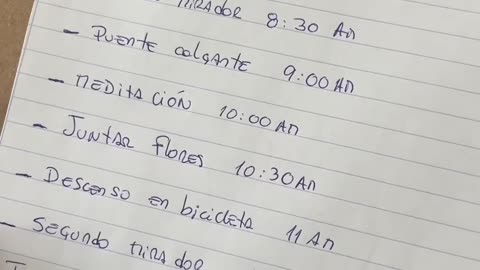 MIRADOR 8:30 AM
- PUENTE COLGANTE 9:00 AM
- MEDITACIÓN 10:00 AM
- JUNTAR FLORES 10:30 AM
- DESCENSO EN bicicleta 11 AM
- SEGUNDO MIRADOR